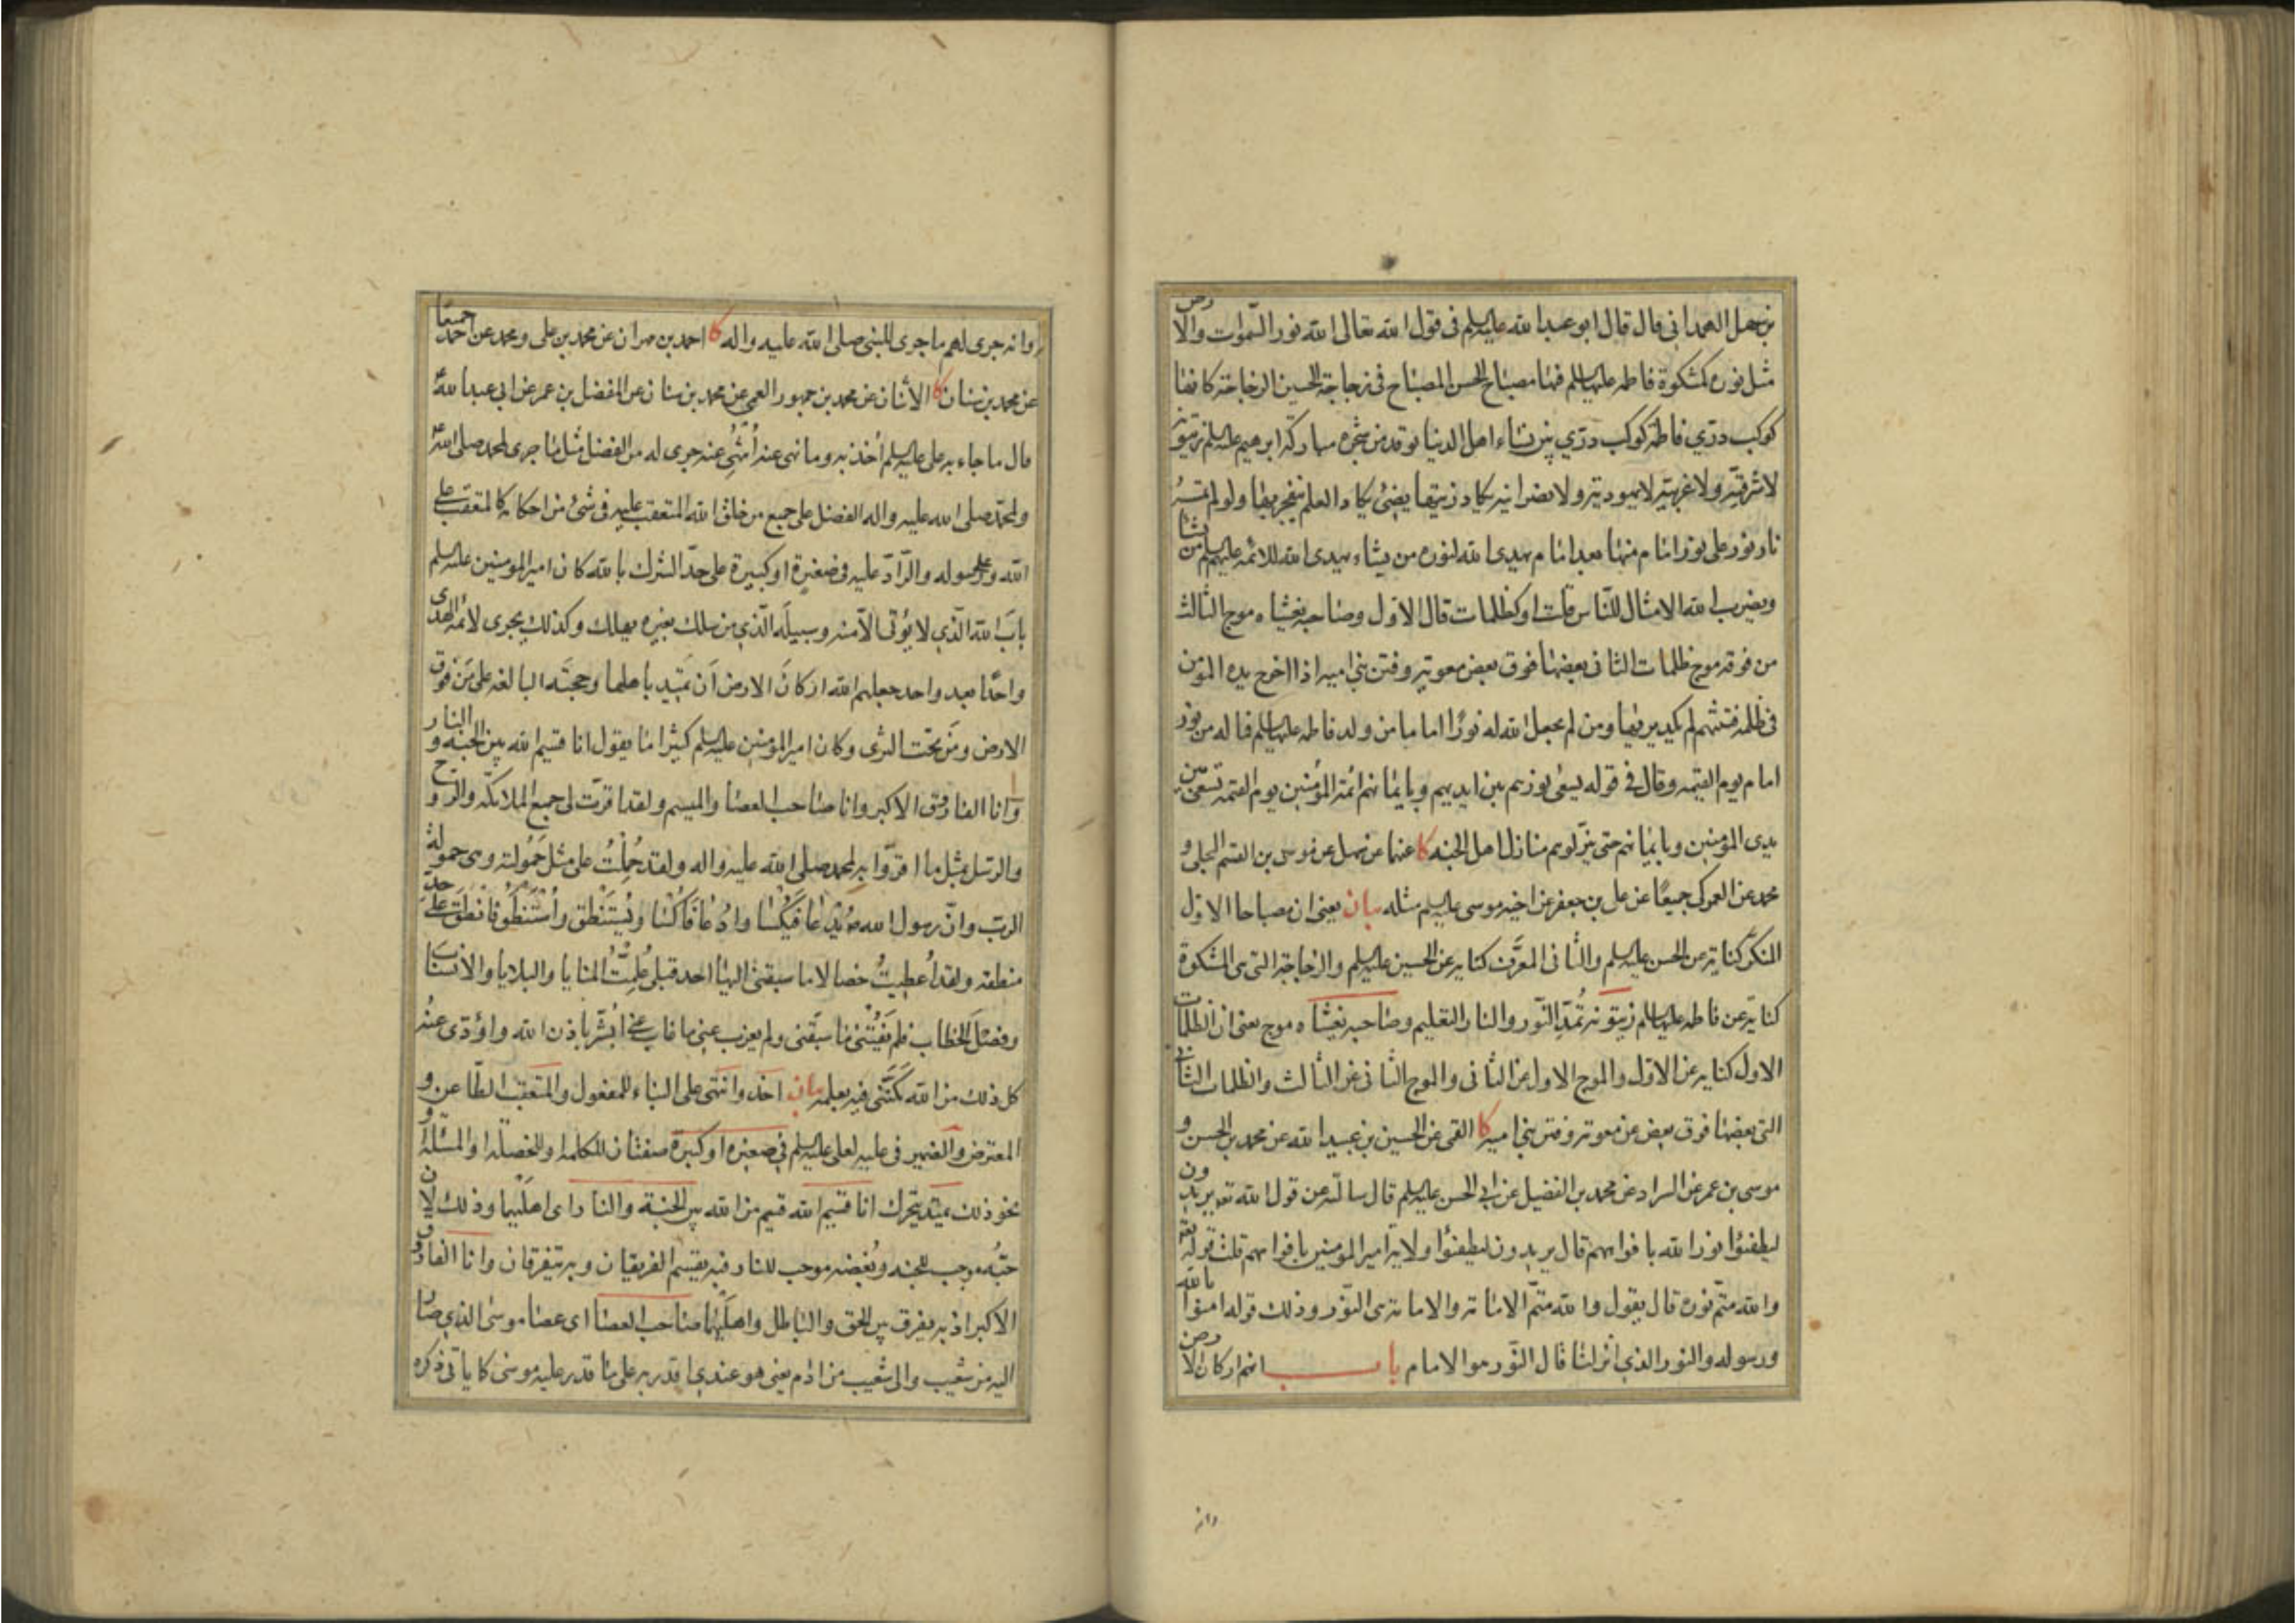 بن سهل الهمداني قال قال ابو عبد الله عليه السلم في قول الله تعالى الله نور السموات والارض
مثل نوره كمشكوة فاطمه عليها السلم فيها مصباح الحسن المصباح في زجاجة الحسين الزجاجة كانها
كوكب دري فاطمة كوكب دري بين نساء اهل الدنيا توقد من شجرة مباركة ابرهيم عليه السلم زيتونة
لا شرقية ولا غربية لا يهودية ولا نصرانية يكاد زيتها يضيئ يكاد العلم ينفجر بها ولو لم تمسسه
نار نور على نور امام منها بعد امام يهدي الله لنوره من يشاء يهدي الله للائمه عليهم السلم من يشاء
ويضرب الله الامثال للناس قلت او كظلمات قال الاول وصاحبه يغشاه موج الثالث
من فوقه موج ظلمات الثاني بعضها فوق بعض معوية وفتن بني امية اذا اخرج يده المؤمن
في ظلمة فتنتهم لم يكد يريها ومن لم يجعل الله له نورًا اماما من ولد فاطمه عليها السلم فما له من نور
امام يوم القيمه وقال في قوله يسعى نورهم بين ايديهم وبايمانهم ائمة المؤمنين يوم القيمه تسعى بين
يدي المؤمنين وبايمانهم حتى ينزلوهم منازل اهل الجنه كا عنهما عن سهل عن موسى بن القسم البجلي و
محمد عن العمركي جميعًا عن علي بن جعفر عن اخيه موسى عليه السلم مثله بيان يعني ان مصباحا الاول
المنكر كناية عن الحسن عليه السلم والثاني المعرف كناية عن الحسين عليه السلم والزجاجة التي هي المشكوة
كناية عن فاطمه عليها السلم زيتونة تمد النور والنار التعليم وصاحبه يغشاه موج يعني ان الظلمات
الاول كناية عن الاول والموج الاول عن الثاني والموج الثاني عن الثالث والظلمات الثاني
التي بعضها فوق بعض عن معوية وفتن بني امية كا القمي عن الحسين بن عبيد الله عن محمد بن الحسن و
موسى بن عمر عن السراد عن محمد بن الفضيل عن ابي الحسن عليه السلم قال سالته عن قول الله تع يريدون
ليطفئوا نور الله بافواههم قال يريدون ليطفئوا ولاية امير المؤمنين بافواههم قلت قوله تع
والله متم نوره قال يقول والله متم الامامة والامامة هي النور وذلك قوله امنوا بالله
ورسوله والنور الذي انزلنا قال النور هو الامام باب انهم اركان الارض
وانه
وانه جرى لهم ما جرى للنبي صلى الله عليه واله كا احمد بن مهران عن محمد بن علي ومحمد عن احمد جميعا
عن محمد بن سنان كا الاثنان عن محمد بن جمهور العمي عن محمد بن سنان عن المفضل بن عمر عن ابي عبد الله ع
قال ما جاء به علي عليه السلم اُخذ به وما نهى عنه اُنتُهِي عنه جرى له من الفضل مثل ما جرى لمحمد صلى الله
ولمحمد صلى الله عليه واله الفضل على جميع من خلق الله المتعقب عليه في شئ من احكامه كالمتعقب على
الله وعلى رسوله والراد عليه في صغيرة او كبيرة على حد الشرك بالله كان امير المؤمنين عليه السلم
بابَ الله الذي لا يؤتى الا منه وسبيلَه الذي من سلك بغيره يهلك وكذلك يجري لائمة الهدى
واحدًا بعد واحد جعلهم الله اركانَ الارض اَن تميد باهلها وحجته البالغه على مَن فوق
الارض ومَن تحت الثرى وكان امير المؤمنين عليه السلم كثيرًا ما يقول انا قسيم الله بين الجنة و النار
وانا الفاروق الاكبر وانا صاحب العصا والميسم ولقد اقرّت لي جميع الملائكة والروح
والرسل بمثل ما اقرّوا به لمحمد صلى الله عليه واله ولقد حُمِلْتُ على مثل حَمُولته وهي حمولة
الرب وان رسول الله ص يُدعا فيُكسا واُدعا فاُكسا ويُستَنْطق واُستَنْطَق فانطق على حد
منطقه ولقد اُعطيتُ خصالا ما سبقني اليها احد قبلي عُلِّمتُ المنايا والبلايا والانساب
وفصلَ الخطاب فلم يَفُتْني ما سبقني ولم يعزب عني ما غاب عني اُبَشِّر باذن الله واؤدي عنه
كل ذلك من الله مَكّنَني فيه بعلمه بيان اخذ وانتهى على البناء للمفعول والمتعقب الطاعن و
المعترض والضمير في عليه لعلي عليه السلم في صغيره او كبيره صفتان للكلمه او للخصلة او المسئلة
نحو ذلك تميد تتحرك انا قسيم الله قسيم من الله بين الجنة والنار اي اهليهما وذلك لان
حبّه موجب للجنة وبُغضه موجب للنار فبه يقسم الفريقان وبه يتفرقان وانا الفاروق
الاكبر اذ به يفرق بين الحق والباطل واهليهما صاحب العصا اي عصا موسى الذي صار
اليه من شعيب والى شعيب من ادم يعني هو عندي اقدر به على ما قدر عليه موسى كما ياتي ذكره